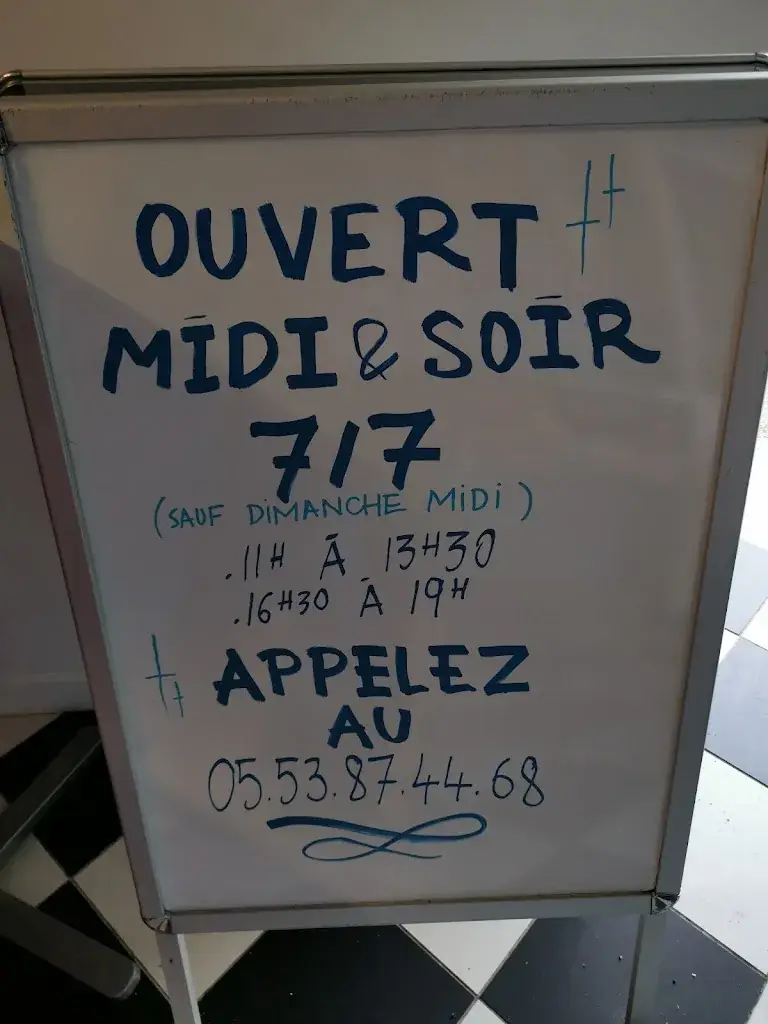 OUVERT
MIDI & SOIR
7/7
(SAUF DIMANCHE MIDI)
.11H À 13H30
.16H30 À 19H
APPELEZ
AU
05.53.87.44.68